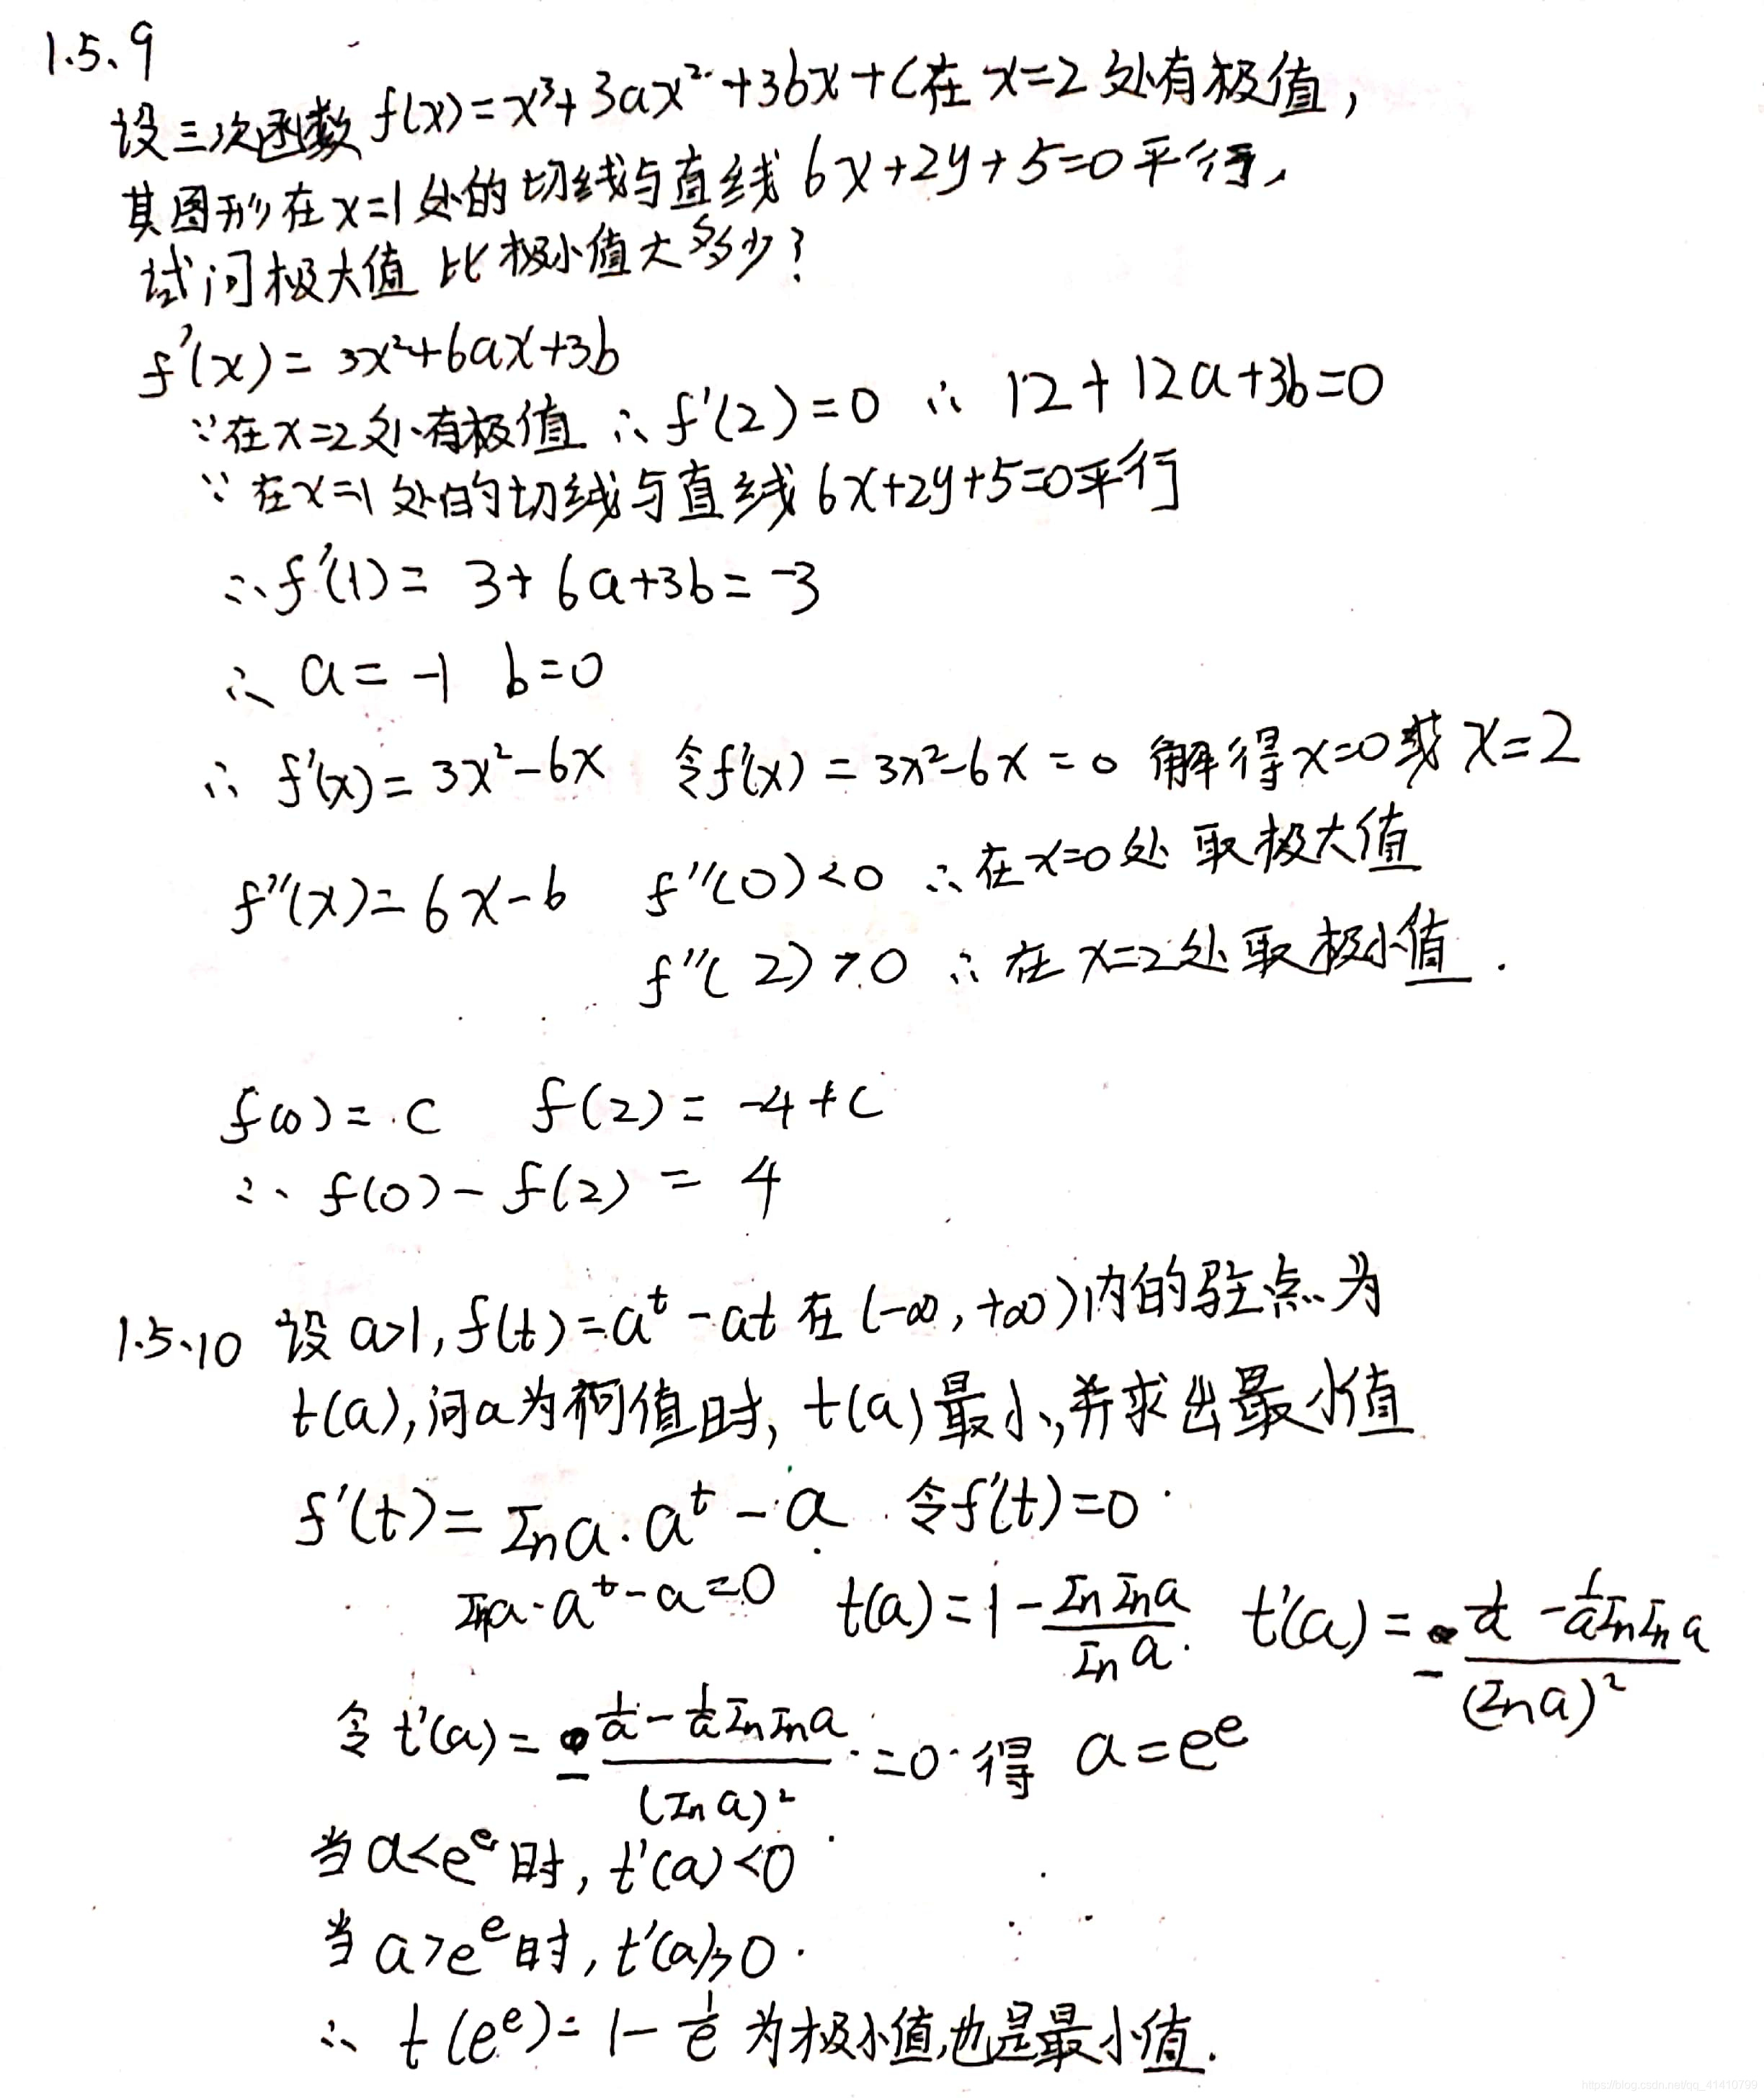 1.5.9
设三次函数 f(x)=x³+3ax²+3bx+c在 x=2 处有极值，
其图形在x=1处的切线与直线 6x+2y+5=0平行，
试问极大值比极小值大多少？
f'(x)= 3x²+6ax+3b
∵在x=2处有极值 ∴f'(2)=0 ∴ 12+12a+3b=0
∵在x=1处的切线与直线6x+2y+5=0平行
∴f'(1)= 3+6a+3b=-3
∴ a=-1 b=0
∴ f'(x)=3x²-6x 令f'(x)=3x²-6x=0 解得x=0或x=2
f''(x)=6x-6 f''(0)<0 ∴在x=0处取极大值
f''(2)>0 ∴在x=2处取极小值.
f(0)=c f(2)=-4+c
∴ f(0)-f(2)=4
1.5.10 设a>1, f(t)=a^t-at 在(-∞,+∞)内的驻点为
t(a),问a为何值时, t(a)最小,并求出最小值
f'(t)=Ina·a^t-a 令f'(t)=0
Ina·a^t-a=0 t(a)=1-\frac{In Ina}{In a} t'(a)=-\frac{\frac{1}{a}-\frac{1}{a}InIna}{(Ina)²}
令 t'(a)=-\frac{\frac{1}{a}-\frac{1}{a}InIna}{(Ina)²}=0 得 a=e^e
当a<e^e时, t'(a)<0
当a>e^e时, t'(a)>0
∴ t(e^e)=1-\frac{1}{e} 为极小值,也是最小值.
https://blog.csdn.net/qq_41410799